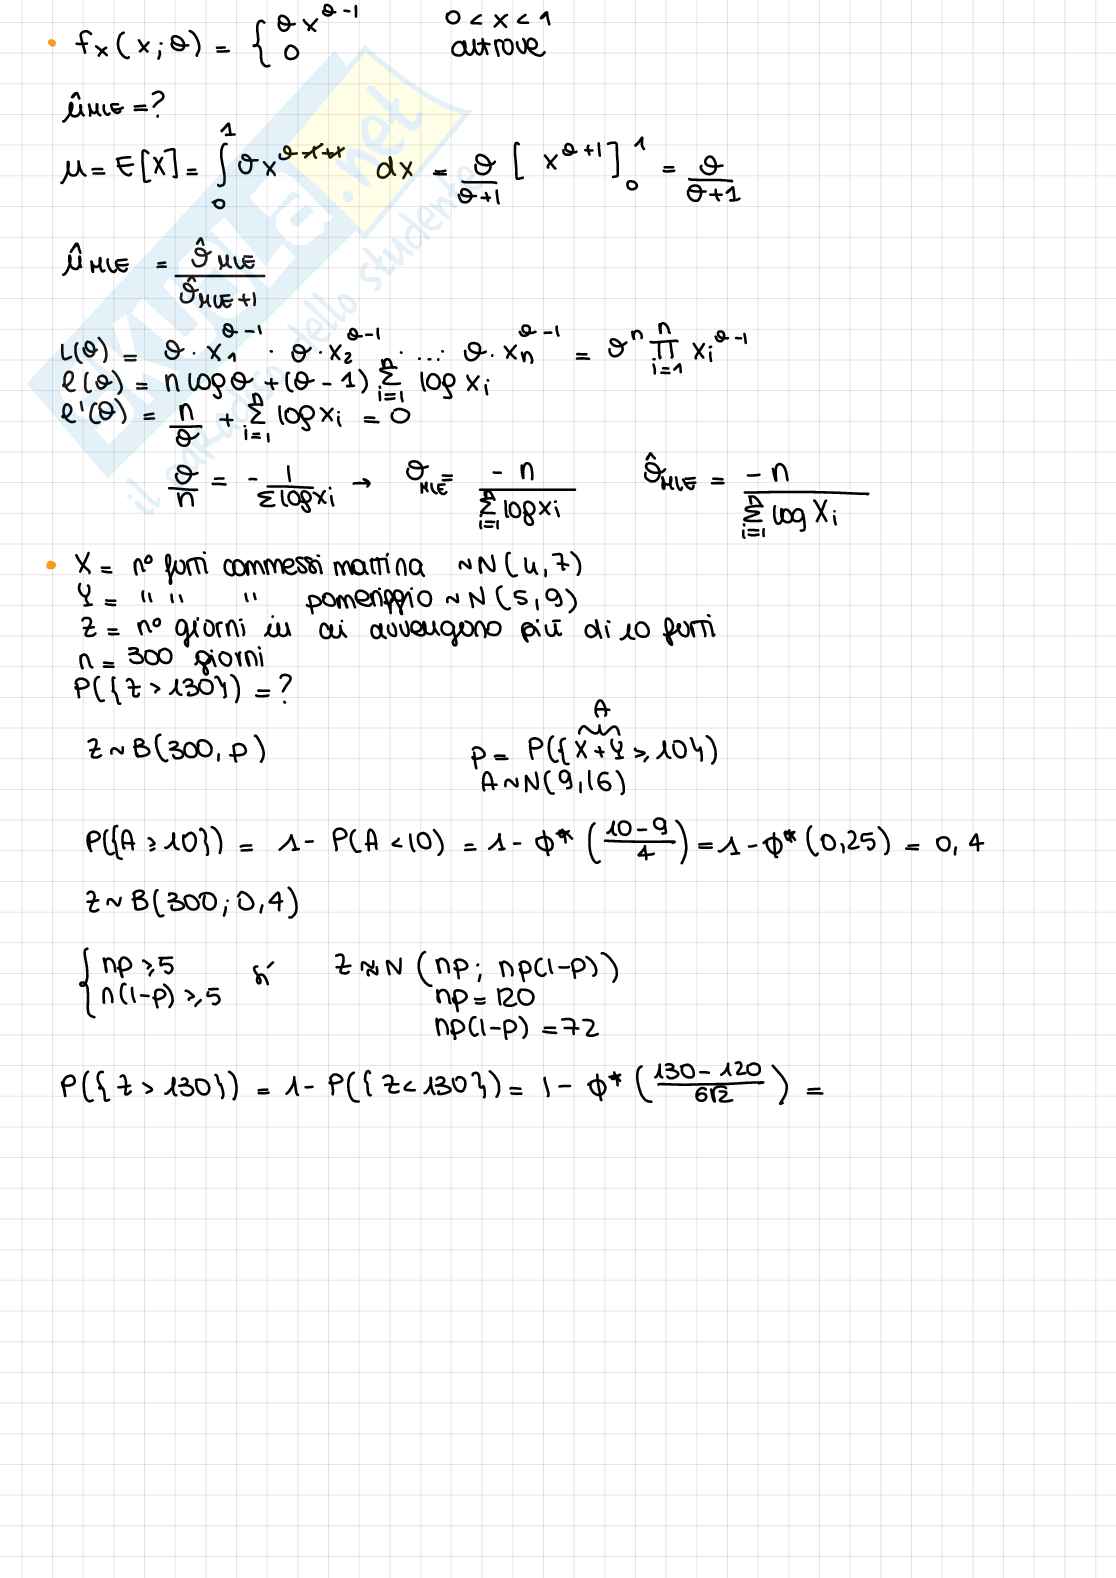 • fx(x;θ) = { θx^(θ-1)   0 < x < 1
0   altrove
μ̂MLE = ?
μ = E[X] = ∫₀¹ θx^(θ-1+1) dx = θ/(θ+1) [x^(θ+1)]₀¹ = θ/(θ+1)
μ̂MLE = θ̂MLE/(θ̂MLE+1)
L(θ) = θ·x₁^(θ-1) · θ·x₂^(θ-1) · ... · θ·xn^(θ-1) = θ^n ∏_{i=1}^n xi^(θ-1)
l(θ) = n logθ + (θ-1) Σ_{i=1}^n log xi
l'(θ) = n/θ + Σ_{i=1}^n log xi = 0
θ/n = - 1/(Σ log xi) → θMLE = -n/(Σ_{i=1}^n log xi)   θ̂MLE = -n/(Σ_{i=1}^n log Xi)
• X = n° furti commessi mattina ~N(4,7)
Y = " " " pomeriggio ~N(5,9)
Z = n° giorni in cui avvengono più di 10 furti
n = 300 giorni
P({Z > 130}) = ?
Z~B(300,p)   p = P({X+Y ≥ 10})
A
A~N(9,16)
P({A ≥ 10}) = 1- P(A < 10) = 1 - ϕ* ((10-9)/4) = 1-ϕ*(0,25) = 0,4
Z~B(300; 0,4)
{ np ≥ 5   sì   Z ≈ N (np; np(1-p))
n(1-p) ≥ 5   np = 120
np(1-p) = 72
P({Z > 130}) = 1- P({Z < 130}) = 1 - ϕ* ((130-120)/(6√2)) =
SKUOLA.net
il paradiso dello studente